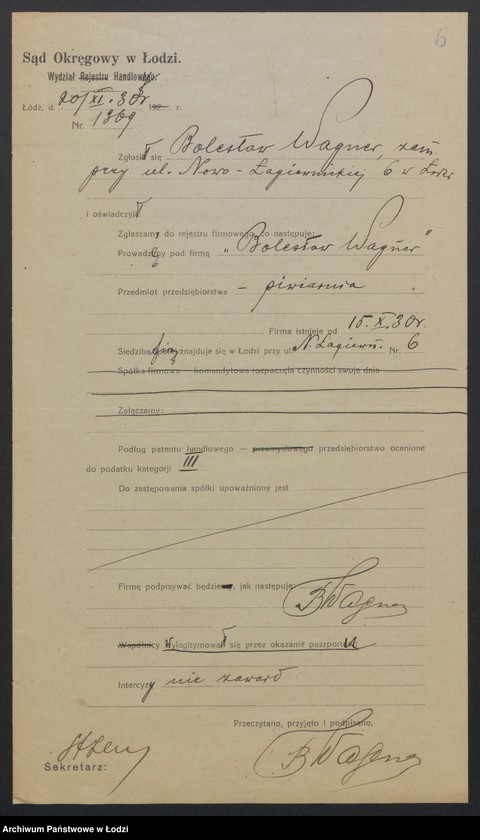 6
Sąd Okręgowy w Łodzi.
Wydział Rejestru Handlowego.
Łódź, d. 20/XI.30r 192 r.
Nr. 1369
Zgłosił się Bolesław Wagner, zam.
przy ul. Nowo-Łagiewnickiej 6 w Łodzi
i oświadczył
Zgłaszam do rejestru firmowego co następuje:
Prowadzę pod firmą „Bolesław Wagner"
Przedmiot przedsiębiorstwa - piwiarnia.
Firma istnieje od 15.X.30r.
Siedziba firmy znajduje się w Łodzi przy ul. N. Łagiewn. Nr. 6
Spółka firmowa — komandytowa rozpoczęła czynności swoje dnia
Załączamy:
Podług patentu handlowego — przemysłowego przedsiębiorstwo ocenione
do podatku kategorji III
Do zastępowania spółki upoważniony jest
Firmę podpisywać będzie, jak następuje:
BWagner
Wspólnicy Wylegitymował się przez okazanie paszportu
Intercyzy nie zawarł
Przeczytano, przyjęto i podpisano.
BWagner
Sekretarz:
Archiwum Państwowe w Łodzi